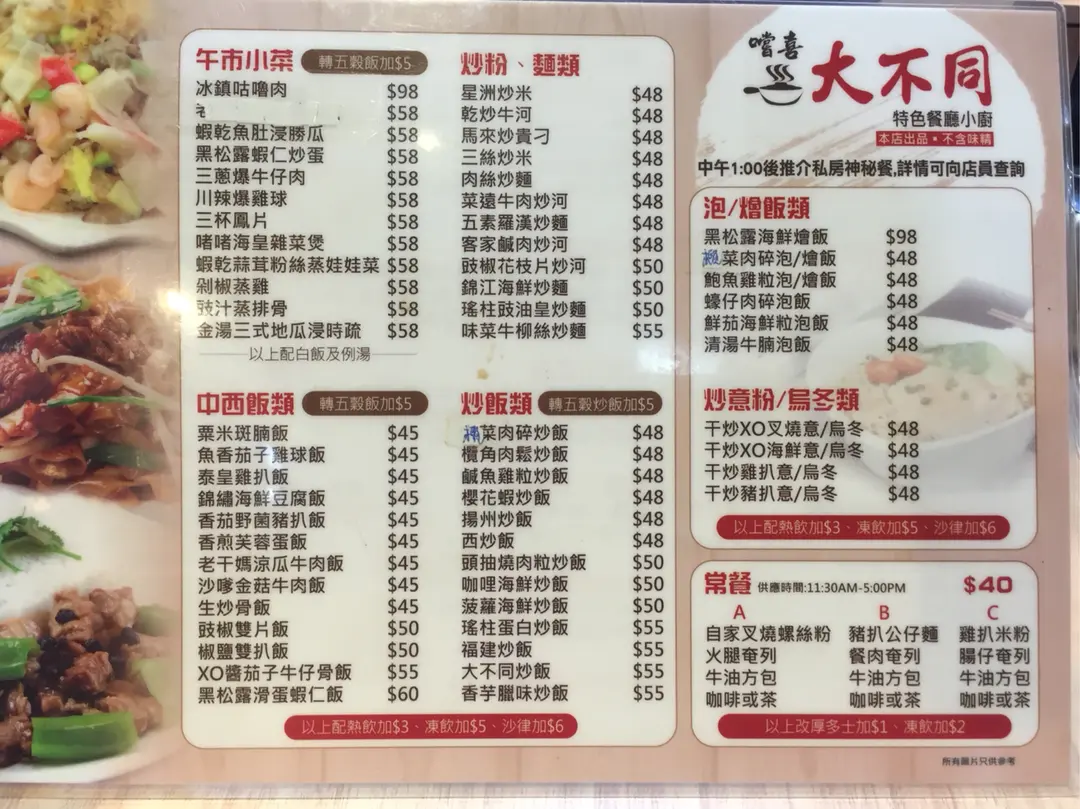 午市小菜 轉五穀飯加$5
冰鎮咕嚕肉 $98
$58
蝦乾魚肚浸勝瓜 $58
黑松露蝦仁炒蛋 $58
三蔥爆牛仔肉 $58
川辣爆雞球 $58
三杯鳳片 $58
啫啫海皇雜菜煲 $58
蝦乾蒜茸粉絲蒸娃娃菜 $58
剁椒蒸雞 $58
豉汁蒸排骨 $58
金湯三式地瓜浸時疏 $58
以上配白飯及例湯
炒粉、麵類
星洲炒米 $48
乾炒牛河 $48
馬來炒貴刁 $48
三絲炒米 $48
肉絲炒麵 $48
菜遠牛肉炒河 $48
五素羅漢炒麵 $48
客家鹹肉炒河 $48
豉椒花枝片炒河 $50
錦江海鮮炒麵 $50
瑤柱豉油皇炒麵 $50
味菜牛柳絲炒麵 $55
中西飯類 轉五穀飯加$5
粟米斑腩飯 $45
魚香茄子雞球飯 $45
泰皇雞扒飯 $45
錦繡海鮮豆腐飯 $45
香茄野菌豬扒飯 $45
香煎芙蓉蛋飯 $45
老干媽涼瓜牛肉飯 $45
沙嗲金菇牛肉飯 $45
生炒骨飯 $45
豉椒雙片飯 $50
椒鹽雙扒飯 $50
XO醬茄子牛仔骨飯 $55
黑松露滑蛋蝦仁飯 $60
炒飯類 轉五穀炒飯加$5
菜肉碎炒飯 $48
欖角肉鬆炒飯 $48
鹹魚雞粒炒飯 $48
櫻花蝦炒飯 $48
揚州炒飯 $48
西炒飯 $48
頭抽燒肉粒炒飯 $50
咖哩海鮮炒飯 $50
菠蘿海鮮炒飯 $50
瑤柱蛋白炒飯 $55
福建炒飯 $55
大不同炒飯 $55
香芋臘味炒飯 $55
以上配熱飲加$3、凍飲加$5、沙律加$6
嚐喜
大不同
特色餐廳小廚
本店出品▪不含味精
中午1:00後推介私房神秘餐,詳情可向店員查詢
泡/燴飯類
黑松露海鮮燴飯 $98
菜肉碎泡/燴飯 $48
鮑魚雞粒泡/燴飯 $48
蠔仔肉碎泡飯 $48
鮮茄海鮮粒泡飯 $48
清湯牛腩泡飯 $48
炒意粉/烏冬類
干炒XO叉燒意/烏冬 $48
干炒XO海鮮意/烏冬 $48
干炒雞扒意/烏冬 $48
干炒豬扒意/烏冬 $48
以上配熱飲加$3、凍飲加$5、沙律加$6
常餐 供應時間:11:30AM-5:00PM $40
A B C
自家叉燒螺絲粉 豬扒公仔麵 雞扒米粉
火腿奄列 餐肉奄列 腸仔奄列
牛油方包 牛油方包 牛油方包
咖啡或茶 咖啡或茶 咖啡或茶
以上改厚多士加$1、凍飲加$2
所有圖片只供參考